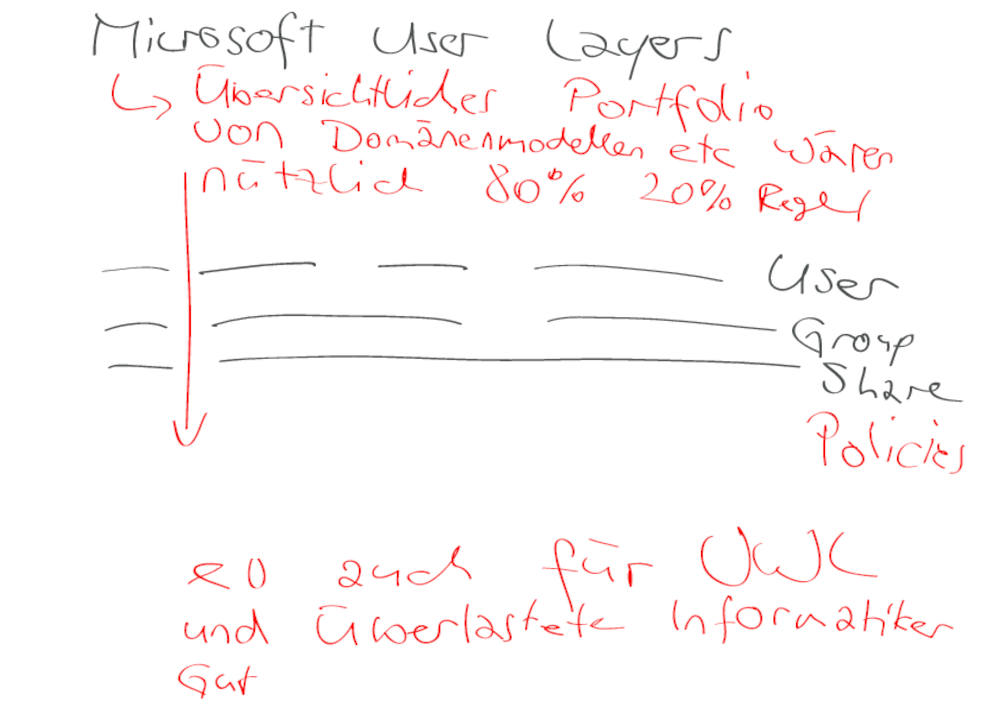 Microsoft User Layers
↳ Übersichtlicher Portfolio
von Domänenmodellen etc wären
nützlich 80% 20% Regel
User
Group
Share
Policies
so auch für
und überlastete Informatiker
Gut